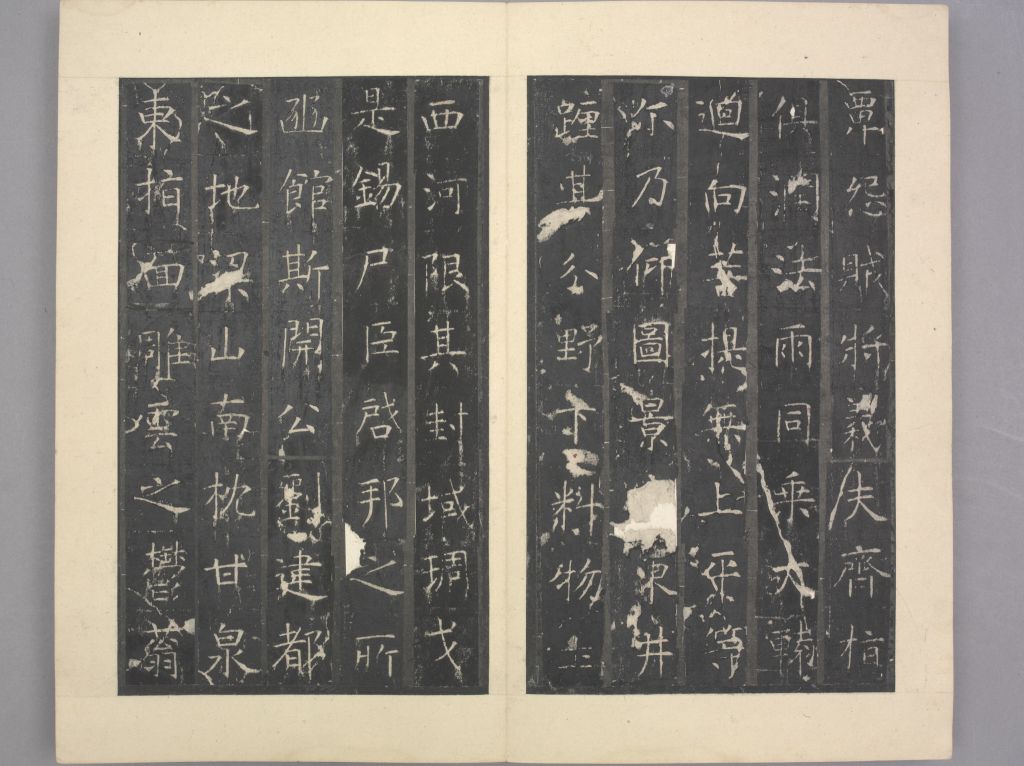 覃怨賊將義夫齊
俱潤法雨同乘大
向菩提無上平等
尒乃仰圖景井
躔其分野下料物土
西河限其封域琱戈
是錫尸臣啓邦之所
豳館斯開公劉建都
之地梁山南枕甘泉
東指面雕雲之鬱蓊